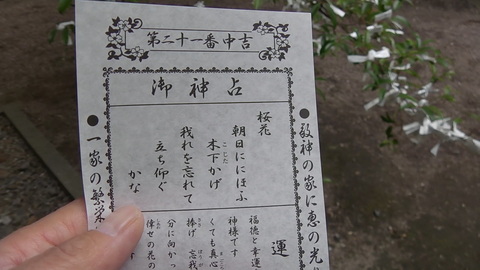 第二十一番中吉
御神占
●敬神の家に恵の光
桜花
朝日ににほふ
木下かげ
こじた
我れを忘れて
立ち仰ぐ
かな
●一家の繁栄
運
福徳と幸運
神様です
くても真心
捧げ
分に向かっ
倖せの花の